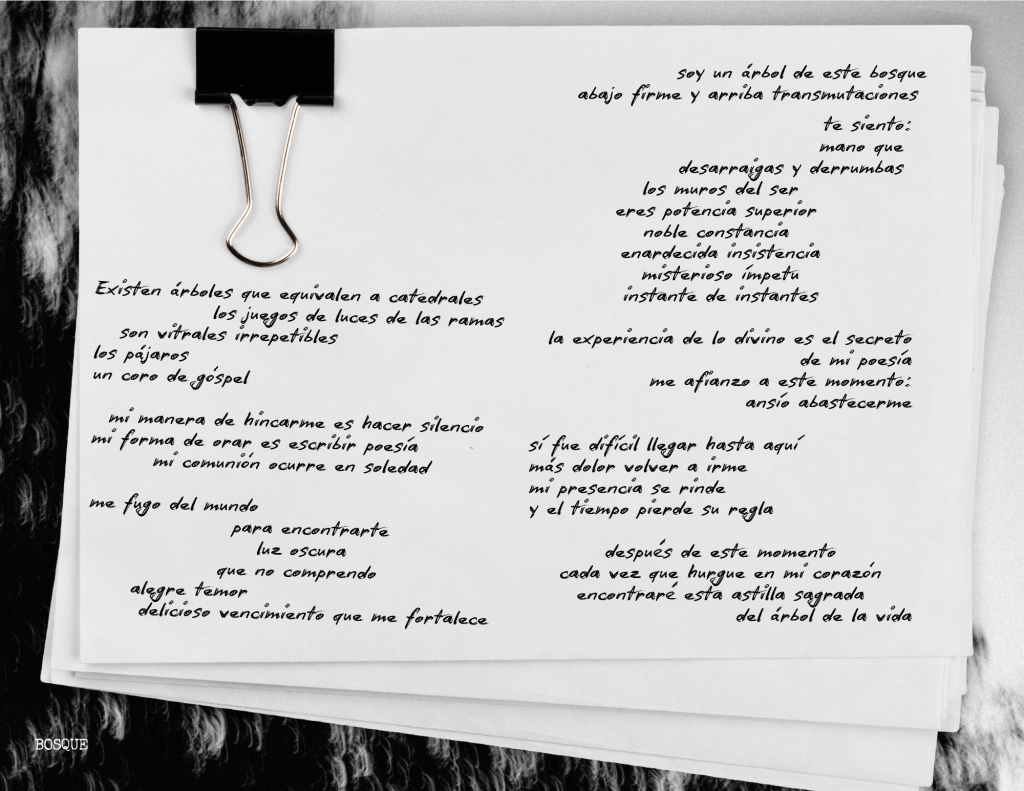 Existen árboles que equivalen a catedrales
los juegos de luces de las ramas
son vitrales irrepetibles
los pájaros
un coro de góspel
mi manera de hincarme es hacer silencio
mi forma de orar es escribir poesía
mi comunión ocurre en soledad
me fugo del mundo
para encontrarte
luz oscura
que no comprendo
alegre temor
delicioso vencimiento que me fortalece
soy un árbol de este bosque
abajo firme y arriba transmutaciones
te siento:
mano que
desarraigas y derrumbas
los muros del ser
eres potencia superior
noble constancia
enardecida insistencia
misterioso ímpetu
instante de instantes
la experiencia de lo divino es el secreto
de mi poesía
me afianzo a este momento:
ansío abastecerme
sí fue difícil llegar hasta aquí
más dolor volver a irme
mi presencia se rinde
y el tiempo pierde su regla
después de este momento
cada vez que hurgue en mi corazón
encontraré esta astilla sagrada
del árbol de la vida
BOSQUE